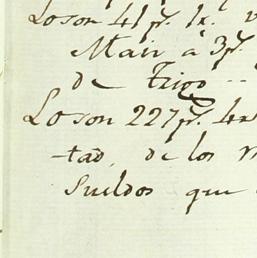 Loson 41 ps. 1r. v
Mair à 3 ps.
de Trigo --
Loson 227 ps. 4r
-tad, de los
Sueldos que